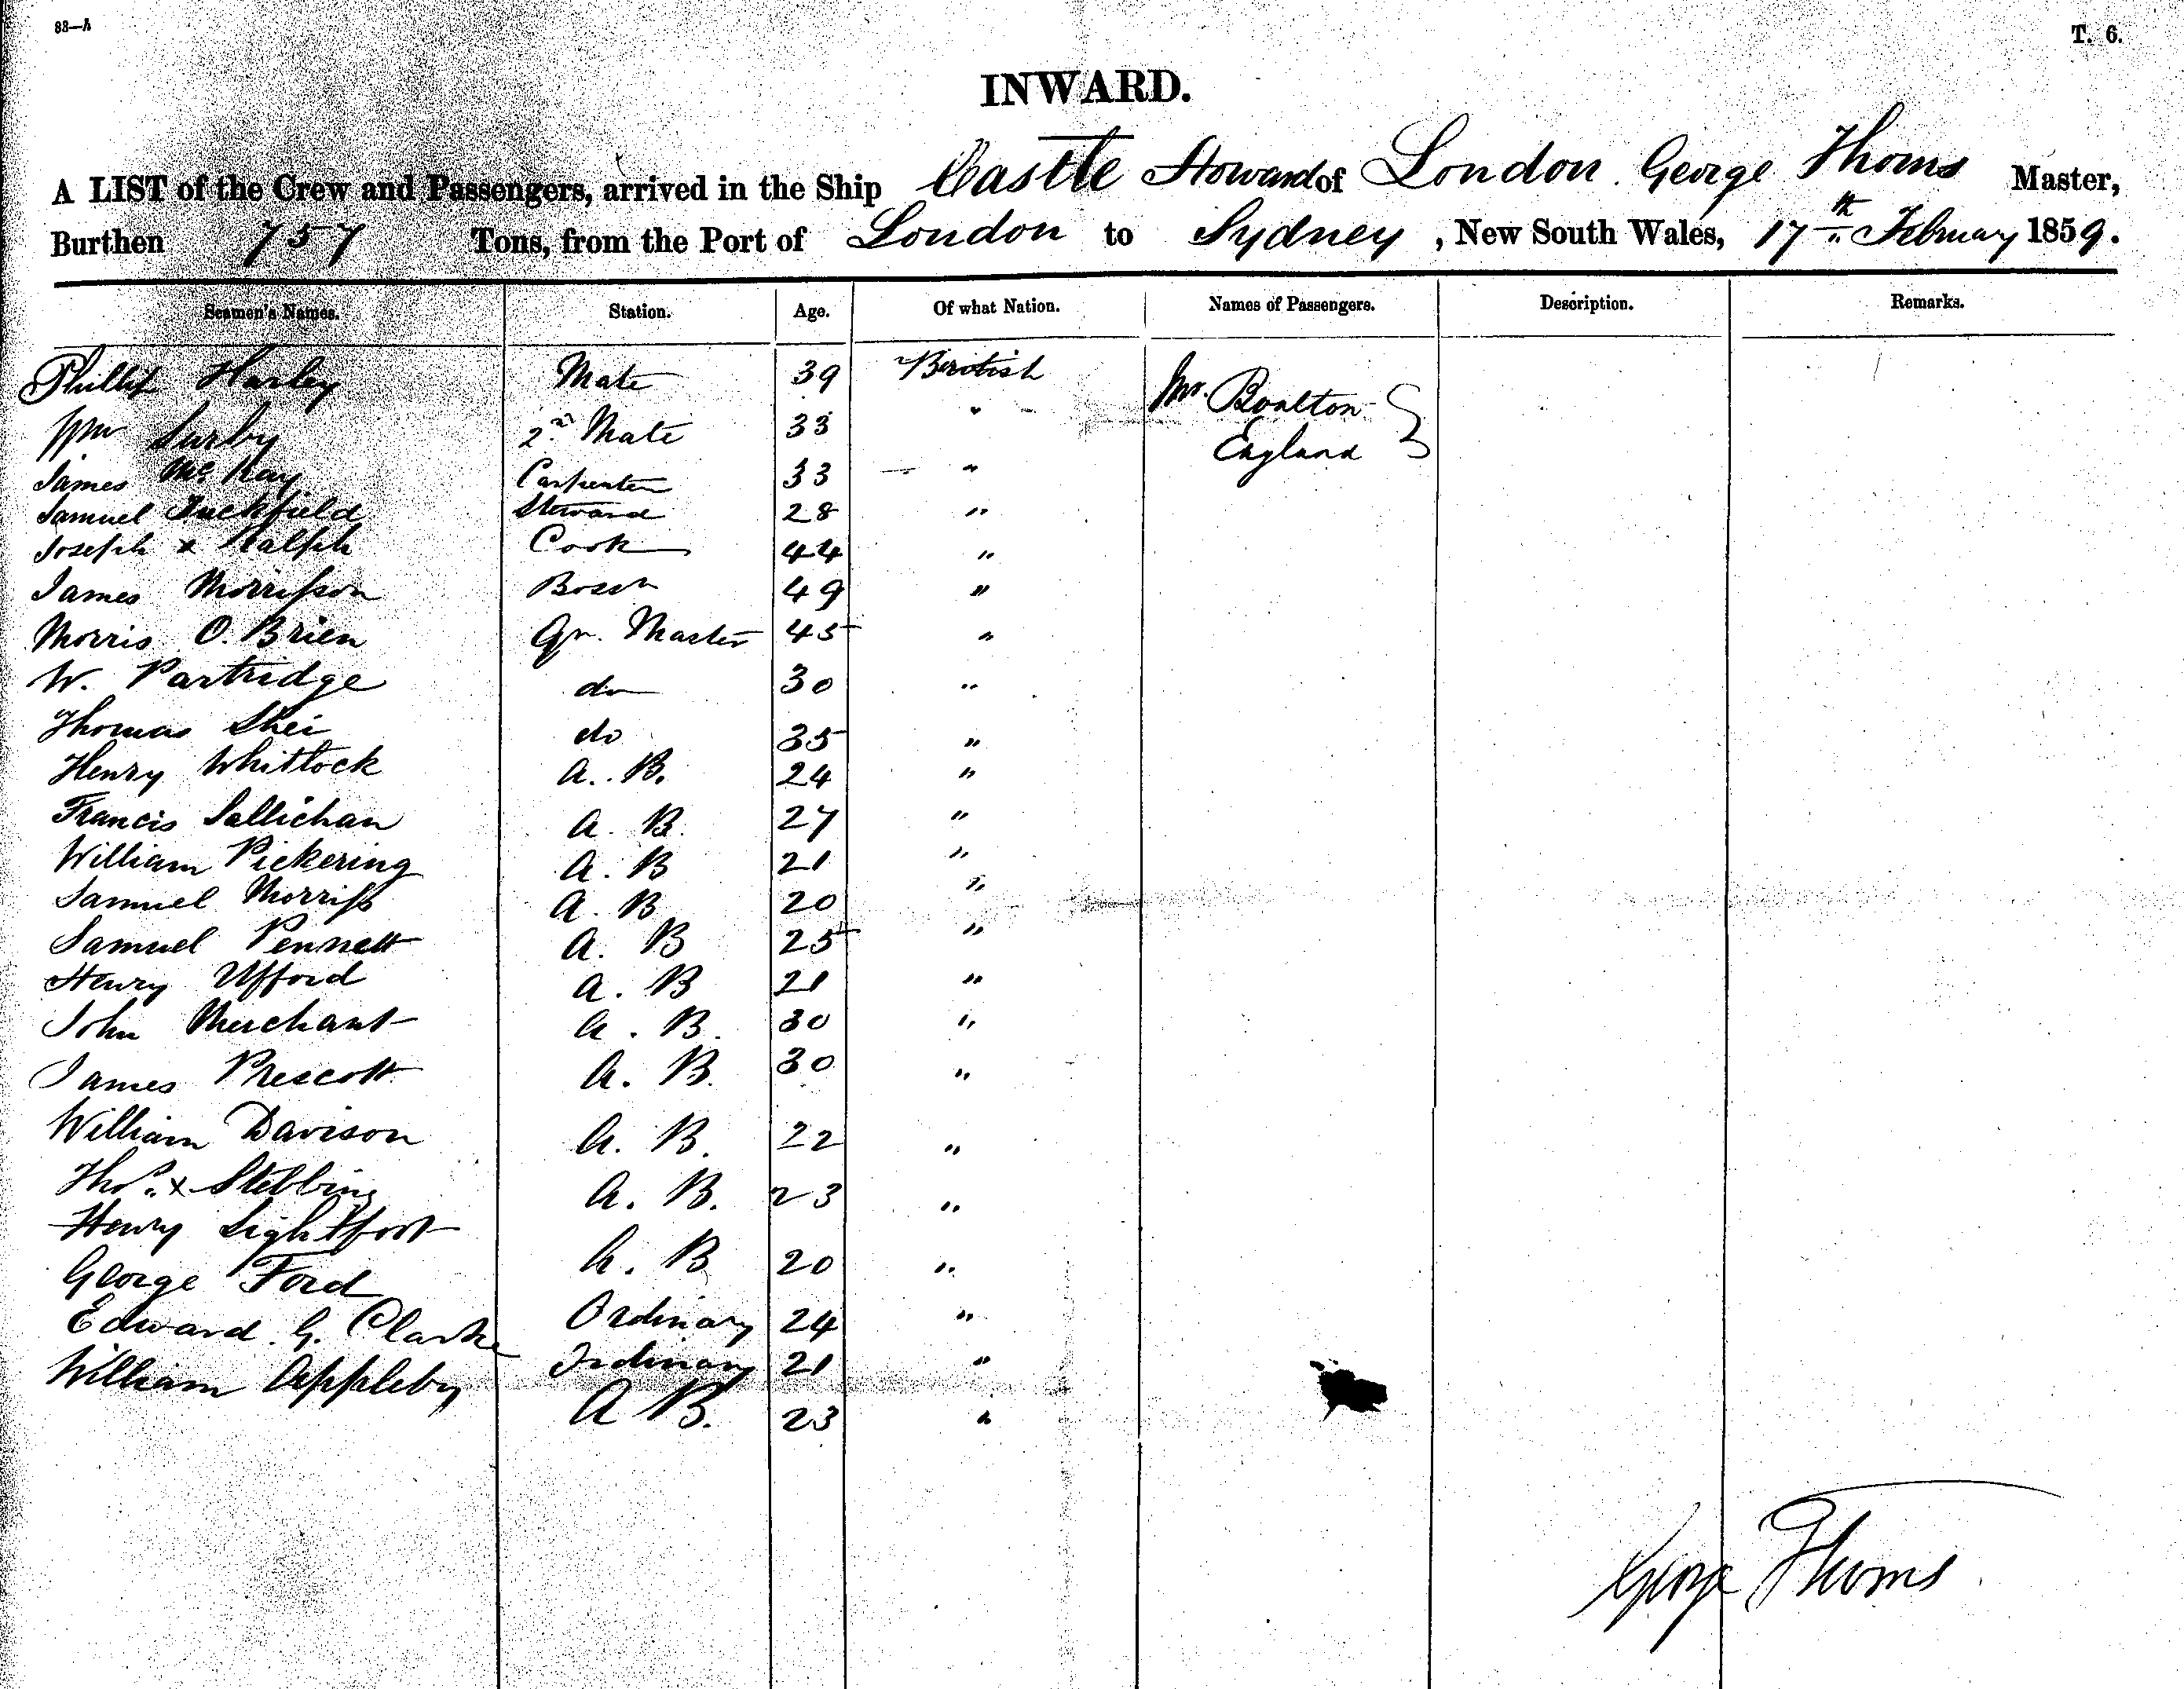 83—A
T. 6.
INWARD.
A LIST of the Crew and Passengers, arrived in the Ship Castle Howard of London George Thoms Master,
Burthen 757 Tons, from the Port of London to Sydney, New South Wales, 17th February 1859.
Seamen's Names. Station. Age. Of what Nation. Names of Passengers. Description. Remarks.
Phillip Harley Mate 39 British Mr. Boulton
Wm Surby 2nd Mate 33 " England
James McKay Carpenter 33 "
Samuel Tuckfield Steward 28 "
Joseph x Ralph Cook 44 "
James Morrisson Bosn 49 "
Morris O. Brien Qr. Master 45 "
W. Partridge do 30 "
Thomas Shei do 35 "
Henry Whitlock A. B. 24 "
Francis Sallichan A. B. 27 "
William Pickering A. B 21 "
Samuel Morriss A. B 20 "
Samuel Pennett A. B 25 "
Henry Ufford A. B 21 "
John Merchant A. B. 30 "
James Prescott A. B. 30 "
William Davison A. B. 22 "
Thos. x Stebbing A. B. 23 "
Henry Lightfoot A. B 20 "
George Ford Ordinary 24 "
Edward. G. Clarke Ordinary 21 "
William Appleby A B. 23 "
George Thoms